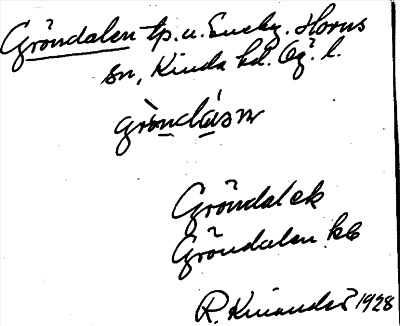 Gröndalen tp. u. Eneby. Horns
sn, Kinda hd. Ög. l.
gròndásɴ
Gröndal ek
Gröndalen kb
R. Kinander 1928